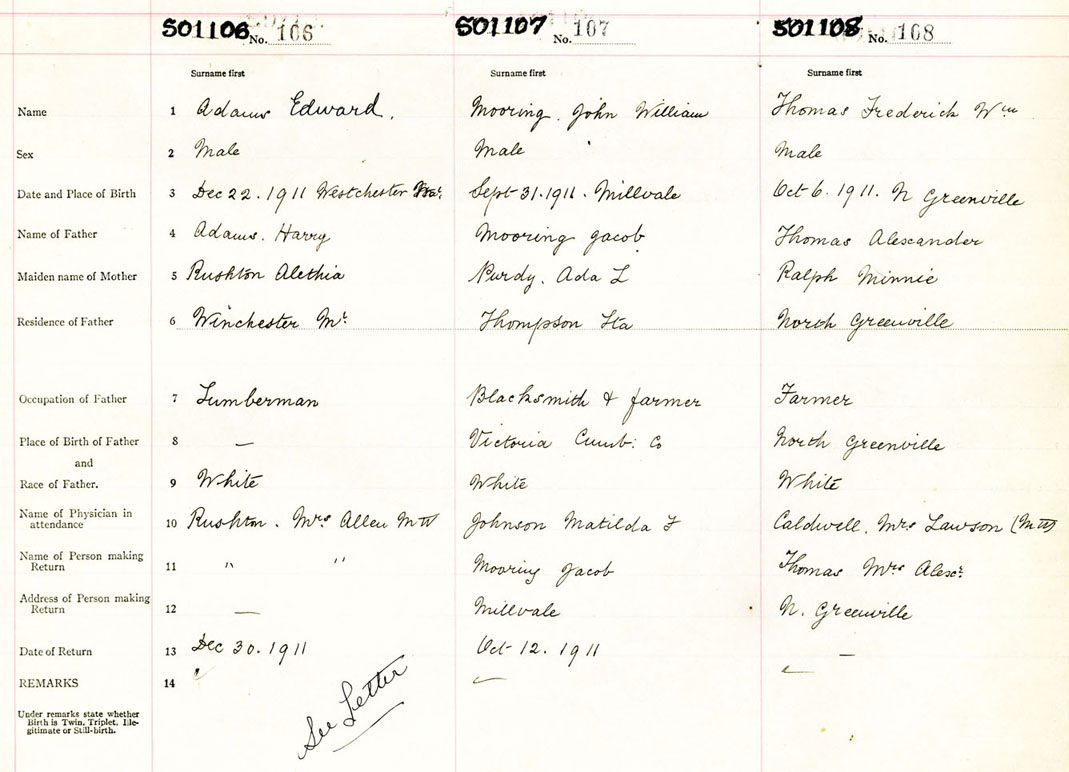 S01106 No. 106 S01107 No. 107 S01108 No. 108
Surname first Surname first Surname first
Name 1 Adams Edward. Mooring. John William Thomas Frederick Wm
Sex 2 Male Male Male
Date and Place of Birth 3 Dec 22. 1911 Westchester Sept 31. 1911. Millvale Oct 6. 1911. N Greenville
Name of Father 4 Adams. Harry Mooring Jacob Thomas Alexander
Maiden name of Mother 5 Rushton Alethia Purdy. Ada L Ralph Minnie
Residence of Father 6 Winchester Mt. Thompson Sta North Greenville
Occupation of Father 7 Lumberman Blacksmith & farmer Farmer
Place of Birth of Father 8 — Victoria Cumb. Co North Greenville
and
Race of Father. 9 White White White
Name of Physician in
attendance 10 Rushton. Mrs Allen MW Johnson Matilda F Caldwell. Mrs Lawson (MW)
Name of Person making
Return 11 " " Mooring Jacob Thomas Mrs Alexr.
Address of Person making
Return 12 — Millvale N. Greenville
Date of Return 13 Dec 30. 1911 Oct 12. 1911 —
REMARKS 14
See Letter
Under remarks state whether
Birth is Twin, Triplet, Ille-
gitimate or Still-birth.